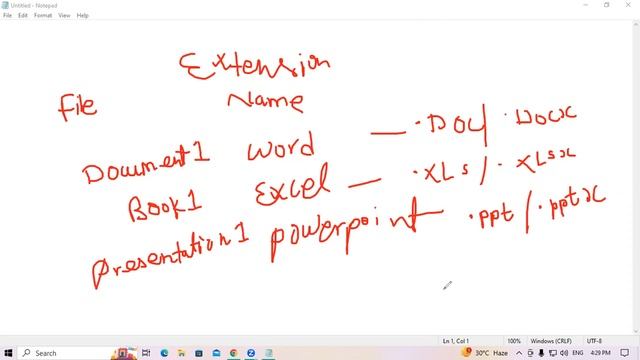 Untitled - Notepad
File Edit Format View Help
Extension
File Name
Document1 Word — .DOC/ .DOCX
Book1 Excel — .XLS/ .XLSX
presentation1 powerpoint — .ppt/ .pptx
Ln 1, Col 1 100% Windows (CRLF) UTF-8
Search 30°C Haze ENG 4:29 PM